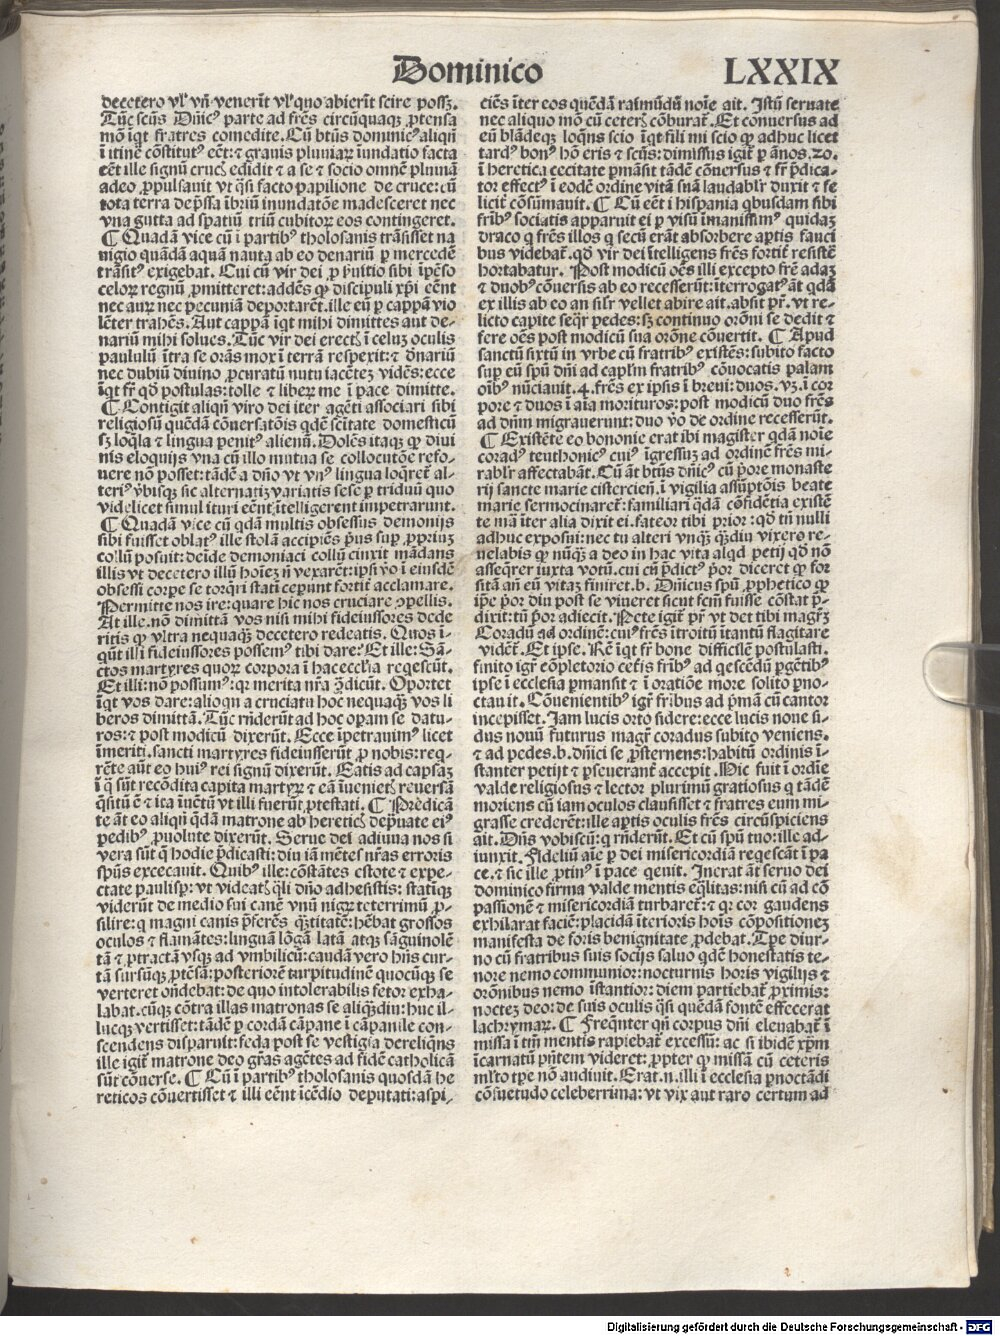 Dominico LXXIX
decetero vl' vñ venerĩt vl' quo abierĩt scire possꝫ.
Tũc scũs Dñicꝰ parte ad frẽs circũquaqꝫ ꝓtensa
mõ ĩqt fratres comedite. Cũ btũs dominicꝰ aliqñ
ĩ itinẽ cõstitutꝰ eẽt: ⁊ grauis pluuiaꝝ ĩundatio facta
eẽt ille signũ crucꝭ edidit ⁊ a se ⁊ socio omnẽ pluuiã
adeo ꝓpulsauit vt q̃si facto papilione de cruce: cũ
tota terra dep̃ssa ĩbriũ inundatõe madesceret nec
vna gutta ad spatiũ triũ cubitoꝝ eos contingeret.
¶ Quadã vice cũ ĩ partibꝰ tholosanis trãsisset na
uigio quãdã aquã nauta ab eo denariũ ꝓ mercede
trãsitꝰ exigebat. Cui cũ vir dei ꝓ ẜuitio sibi ĩpẽso
celoꝝ regnũ ꝓmitteret: addẽs ꝙ discipuli xp̃i eẽnt
nec auꝝ nec pecuniã deportarẽt. ille eũ ꝑ cappã vio
lẽter trahẽs. Aut cappã ĩqt mihi dimittes aut de-
nariũ mihi solues. Tũc vir dei erectꝭ ĩ celuꝫ oculis
paululũ ĩtra se orãs mox ĩ terrã respexit: ⁊ đnariũ
nec dubiũ diuino ꝓcuratũ nutu iacẽteꝫ vidẽs: ecce
ĩqt fr̃ qđ postulas: tolle ⁊ liberũ me ĩ pace dimitte.
¶ Contigit aliqñ viro dei iter agẽti associari sibi
religiosũ quẽdã cõuersatõis qdẽ scĩtate domesticũ
sꝫ loq̃la ⁊ lingua penitꝰ alienũ. Dolẽs itaqꝫ ꝙ diui
nis eloquijs vna cũ illo mutua se collocutõe refo-
uere nõ posset: tãdẽ a dño vt vnꝰ lingua loq̃ret̃ al-
teri ꝰ ṽbisqꝫ sic alternatĩ variatis sese ꝑ triduũ quo
videlicet simul ituri eẽnt ĩtelligerent impetrarunt.
¶ Quadã vice cũ qdã multis obsessus demonijs
sibi fuisset oblatꝰ ille stolã accipiẽs p̃us suꝑ ꝓpriuꝫ
collũ posuit: deĩde demoniaci collũ cinxit mãdans
illis vt decetero illũ hoĩeꝫ ñ vexarẽt: ipsi ṽo ĩ eiusdẽ
obsessi corpe se torq̃ri stati ceperunt fortit̃ acclamare.
Permitte nos ire: quare hic nos cruciare ꝯpellis.
At ille. nõ dimittã vos nisi mihi fideiussores dede
ritis ꝙ vltra nequaꝙꝫ decetero redeatis. Quos ĩ-
qũt illi fideiussores possemꝰ tibi dare? Et ille: Sã-
ctos martyres quoꝝ corpora ĩ hac ecclia reqescũt.
Et illi: nõ possumꝰ: qꝛ merita nr̃a ꝯ̃dicũt. Oportet
ĩqt vos dare: alioqn a cruciatu hoc nequaqꝫ vos li
beros dimittã. Tũc rñderũt ad hoc oꝑam se datu-
ros: ⁊ post modicũ dixerũt. Ecce ĩpetrauimꝰ licet
ĩmeriti. sancti martyres fideiusserũt ꝓ nobis: req̃-
rẽte aũt eo huiꝰ rei signũ dixerũt. Eatis ad capsaꝫ
ĩ q̃ sũt recõdita capita martyꝝ ⁊ eã ĩuenietꝭ reuersã
q̃sitũ ẽ ⁊ ita ĩuẽtũ vt illi fuerũt ꝓtestati. ¶ Prẽdicã
te ãt eo aliqñ qdã matrone ab hereticꝭ dep̃uate eiꝰ
pedibꝰ ꝓuolute dixerũt. Serue dei adiuua nos si
vera sũt q̃ hodie p̃dicasti: diu iã mẽtes nr̃as erroris
spũs excecauit. Quibꝰ ille: cõstãtes estote ⁊ expe-
ctate paulisꝑ: vt videatꝭ q̃li dño adhesistis: statiqꝫ
viderũt de medio sui canẽ vnũ nigꝝ teterrimũ ꝓ-
silire: q magni canis p̃ferẽs q̃titatẽ: hẽbat grossos
oculos ⁊ flamãtes: linguã lõgã latã atqꝫ sãguinolẽ
tã ⁊ ꝓtractã vsqꝫ ad vmbilicũ: caudã vero hñs cur-
tã sursũqꝫ ꝓtẽsã: posteriorẽ turpitudinẽ quocũqꝫ se
verteret oñdebat: de quo intolerabilis fetor exha-
labat. cũqꝫ cõtra illas matronas se aliqꝫdiu: huc il-
lucqꝫ vertisset: tãdẽ ꝑ cordã cãpane ĩ cãpanile con-
scendens disparuit: feda post se vestigia dereliqñs
ille igit̃ matrone deo gr̃as agẽtes ad fidẽ catholicã
sũt cõuerse. ¶ Cũ ĩ partibꝰ tholosanis quosdã he
reticos cõuertisset ⁊ illi eẽnt ĩcẽdio deputati: aspi-
ciẽs ĩter eos quẽdã raimũdũ noĩe ait. Istũ seruate
nec aliquo mõ cũ ceterꝭ cõburat̃. Et conuersus ad
eũ blãdeqꝫ loq̃ns scio ĩqt fili mi scio ꝙ adhuc licet
tardꝰ bonꝰ hõ eris ⁊ scũs: dimissus igit̃ ꝑ ãnos. 20.
ĩ heretica cecitate ꝑmãsit tãdẽ cõuersus ⁊ fr̃ p̃dica-
tor effectꝰ ĩ eodẽ ordine vitã suã laudablr̃ duxit ⁊ fe
licit̃ cõsũmauit. ¶ Cũ eẽt ĩ hispania qbusdam sibi
fr̃ibꝰ sociatis apparuit ei ꝑ visũ ĩmanissimꝰ quidaꝫ
draco q frẽs illos q secũ erãt absorbere aꝑtis fauci
bus videbat̃. qđ vir dei ĩtelligens frẽs fortit̃ resistẽ
hortabatur. Post modicũ oẽs illi excepto frẽ adaꝫ
⁊ duobꝰ cõuersis ab eo recesserũt: ĩterrogatꝰ ãt qdã
ex illis ab eo an sil'r vellet abire ait. absit pr̃. vt re-
licto capite seq̃r pedes: sꝫ continuo orõni se dedit ⁊
fere oẽs post modicũ sua orõne cõuertit. ¶ Apud
sanctũ sixtũ in vrbe cũ fratribꝰ existẽs: subito facto
suꝑ eũ spũ dñi ad capl'm fratribꝰ cõuocatis palam
oĩbꝰ nũciauit. 4. frẽs ex ipsis ĩ breui: duos. vꝫ. ĩ cor
pore ⁊ duos ĩ aĩa morituros: post modicũ duo frẽs
ad dñm migrauerunt: duo ṽo de ordine recesserũt.
¶ Existẽte eo bononie erat ibi magister qdã noĩe
coradꝰ teuthonicꝰ cuiꝰ ĩgressuꝫ ad ordinẽ frẽs mi-
rablr̃ affectabãt. Cũ ãt btũs dñicꝰ cũ p̃ore monaste
rij sancte marie cistercieñ. ĩ vigilia assũptõis beate
marie sermocinaret̃: familiari q̃dã cõfidẽtia existẽ
te mã ĩter alia dixit ei. fateor tibi prior: qđ tñ nulli
adhuc exposui: nec tu alteri vnqꝫ q̃ꝫdiu vixero re-
uelabis ꝙ nũqꝫ a deo in hac vita alqd petij qđ nõ
asseq̃rer iuxta votũ. cui cũ p̃dictꝰ p̃or diceret ꝙ for
sitã añ eũ vitaꝫ finiret. b. Dñicus spũ ꝓphetico ꝙ
ip̃e p̃or diu post se viueret sicut fcm̃ fuisse cõstat p̃-
dixit: tũ p̃or adiecit. Pete igit̃ pr̃ vt det tibi magr̃ꝫ
Coradũ ad ordinẽ: cuiꝰ frẽs ĩtroitũ ĩtantũ flagitare
vidẽt̃. Et ipse. Rẽ ĩqt fr̃ bone difficilẽ postulasti.
finito igr̃ cõpletorio cet̃is fr̃ibꝰ ad qescẽdũ ꝑgẽtibꝰ
ipse ĩ ecclesia ꝑmansit ⁊ ĩ oratiõe more solito ꝑno-
ctauit. Cõuenientibꝰ igr̃ fr̃ibus ad p̃mã cũ cantor
incepisset. Iam lucis orto sidere: ecce lucis noue si-
dus nouũ futurus magr̃ coradus subito veniens.
⁊ ad pedes. b. dñici se ꝓsternens: habitũ ordinis ĩ-
stanter petijt ⁊ ꝑseuerant̃ accepit. Hic fuit ĩ ordĩe
valde religiosus ⁊ lector plurimũ gratiosus q tãdẽ
moriens cũ iam oculos clausisset ⁊ fratres eum mi-
grasse crederẽt: ille aꝑtis oculis frẽs circũspiciens
ait. Dñs vobiscũ: q rñderũt. Et cũ spũ tuo: ille ad-
iunxit. Fideliũ aĩe ꝑ dei misericordiã reqescãt ĩ pa
ce. ⁊ sic ille ꝓtinꝰ ĩ pace qeuit. Inerat ãt seruo dei
dominico firma valde mentis eq̃litas: nisi cũ ad cõ
passionẽ ⁊ misericordiã turbaret̃: ⁊ qꝛ cor gaudens
exhilarat faciẽ: placidã ĩterioris hoĩs cõpositioneꝫ
manifesta de foris benignitate ꝓdebat. Tp̃e diur-
no cũ fratribus suis socijs saluo qdẽ honestatis te-
nore nemo communior: nocturnis horis vigilijs ⁊
orõnibus nemo ĩstantior: diem partiebat̃ ꝓximis:
nocteꝫ deo: de suis oculis q̃si quẽdã fontẽ effecerat
lachrymaꝝ. ¶ Freq̃nter qñ corpus dñi eleuabat̃ ĩ
missa ĩ tm̃ mentis rapiebat̃ excessũ: ac si ibidẽ xp̃m
ĩcarnatũ p̃ñtem videret: ꝓpter ꝙ missã cũ ceteris
ml'to tp̃e nõ audiuit. Erat. n. illi ĩ ecclesia ꝑnoctãdi
cõsuetudo celeberrima: vt vix aut raro certum ad
Digitalisierung gefördert durch die Deutsche Forschungsgemeinschaft - DFG